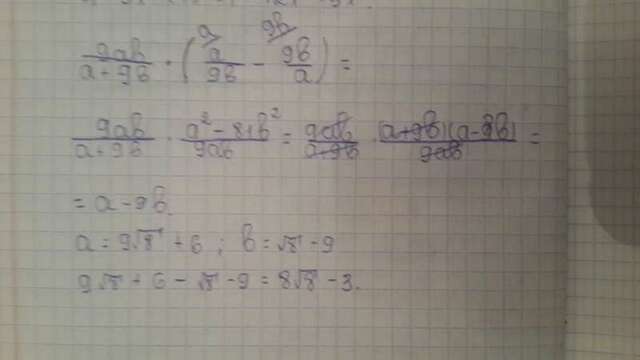 9ab/(a+9b) · (a/9b - 9b/a) =
9ab/(a+9b) · (a² - 81b²)/9ab = 9ab/(a+9b) · (a+9b)(a-9b)/9ab =
= a - 9b.
a = 9√8 + 6 ; b = √8 - 9
9√8 + 6 - √8 - 9 = 8√8 - 3.